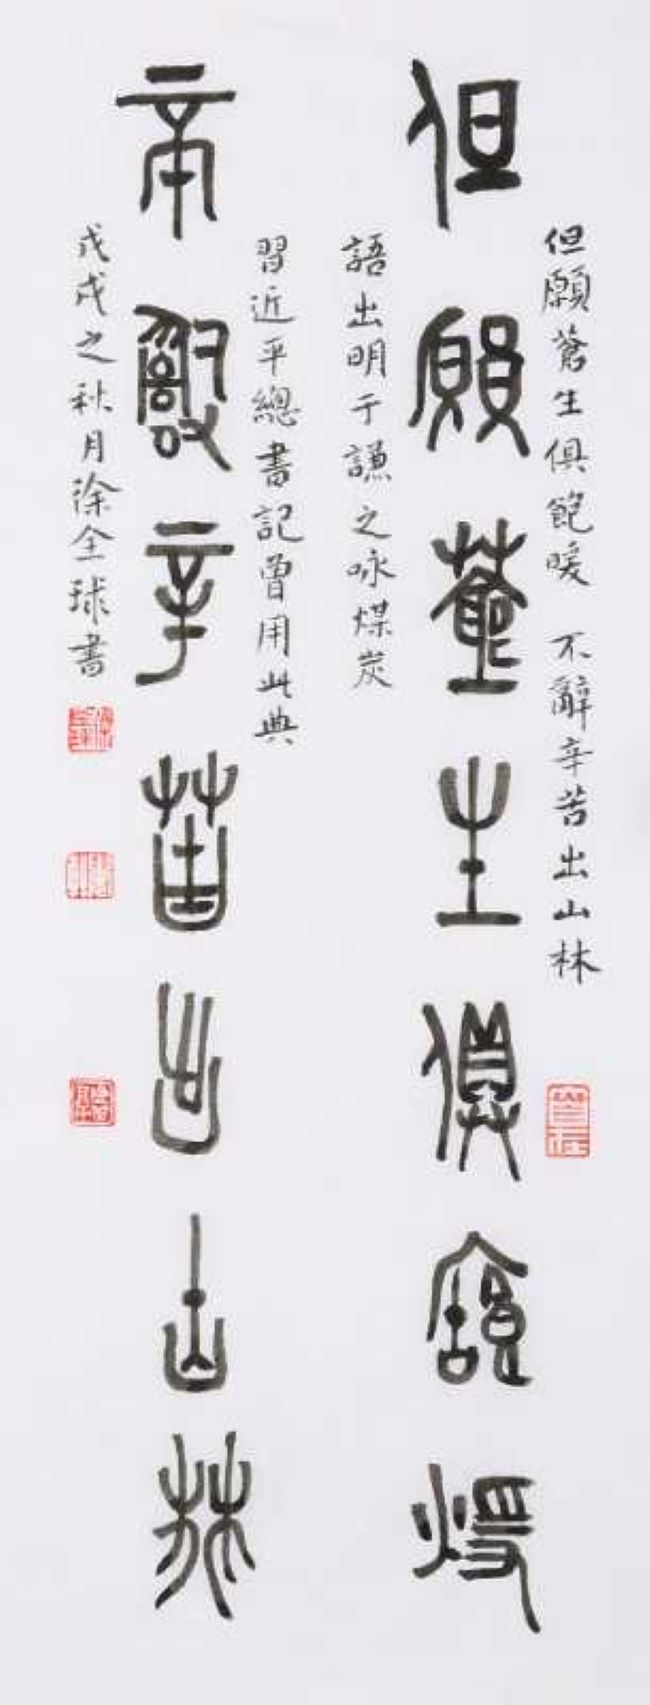 但願蒼生俱飽暖 不辭辛苦出山林
但願蒼生俱飽煖
語出明于謙之咏煤炭
習近平總書記曾用此典
不辭辛苦出山林
戊戌之秋月徐全球書